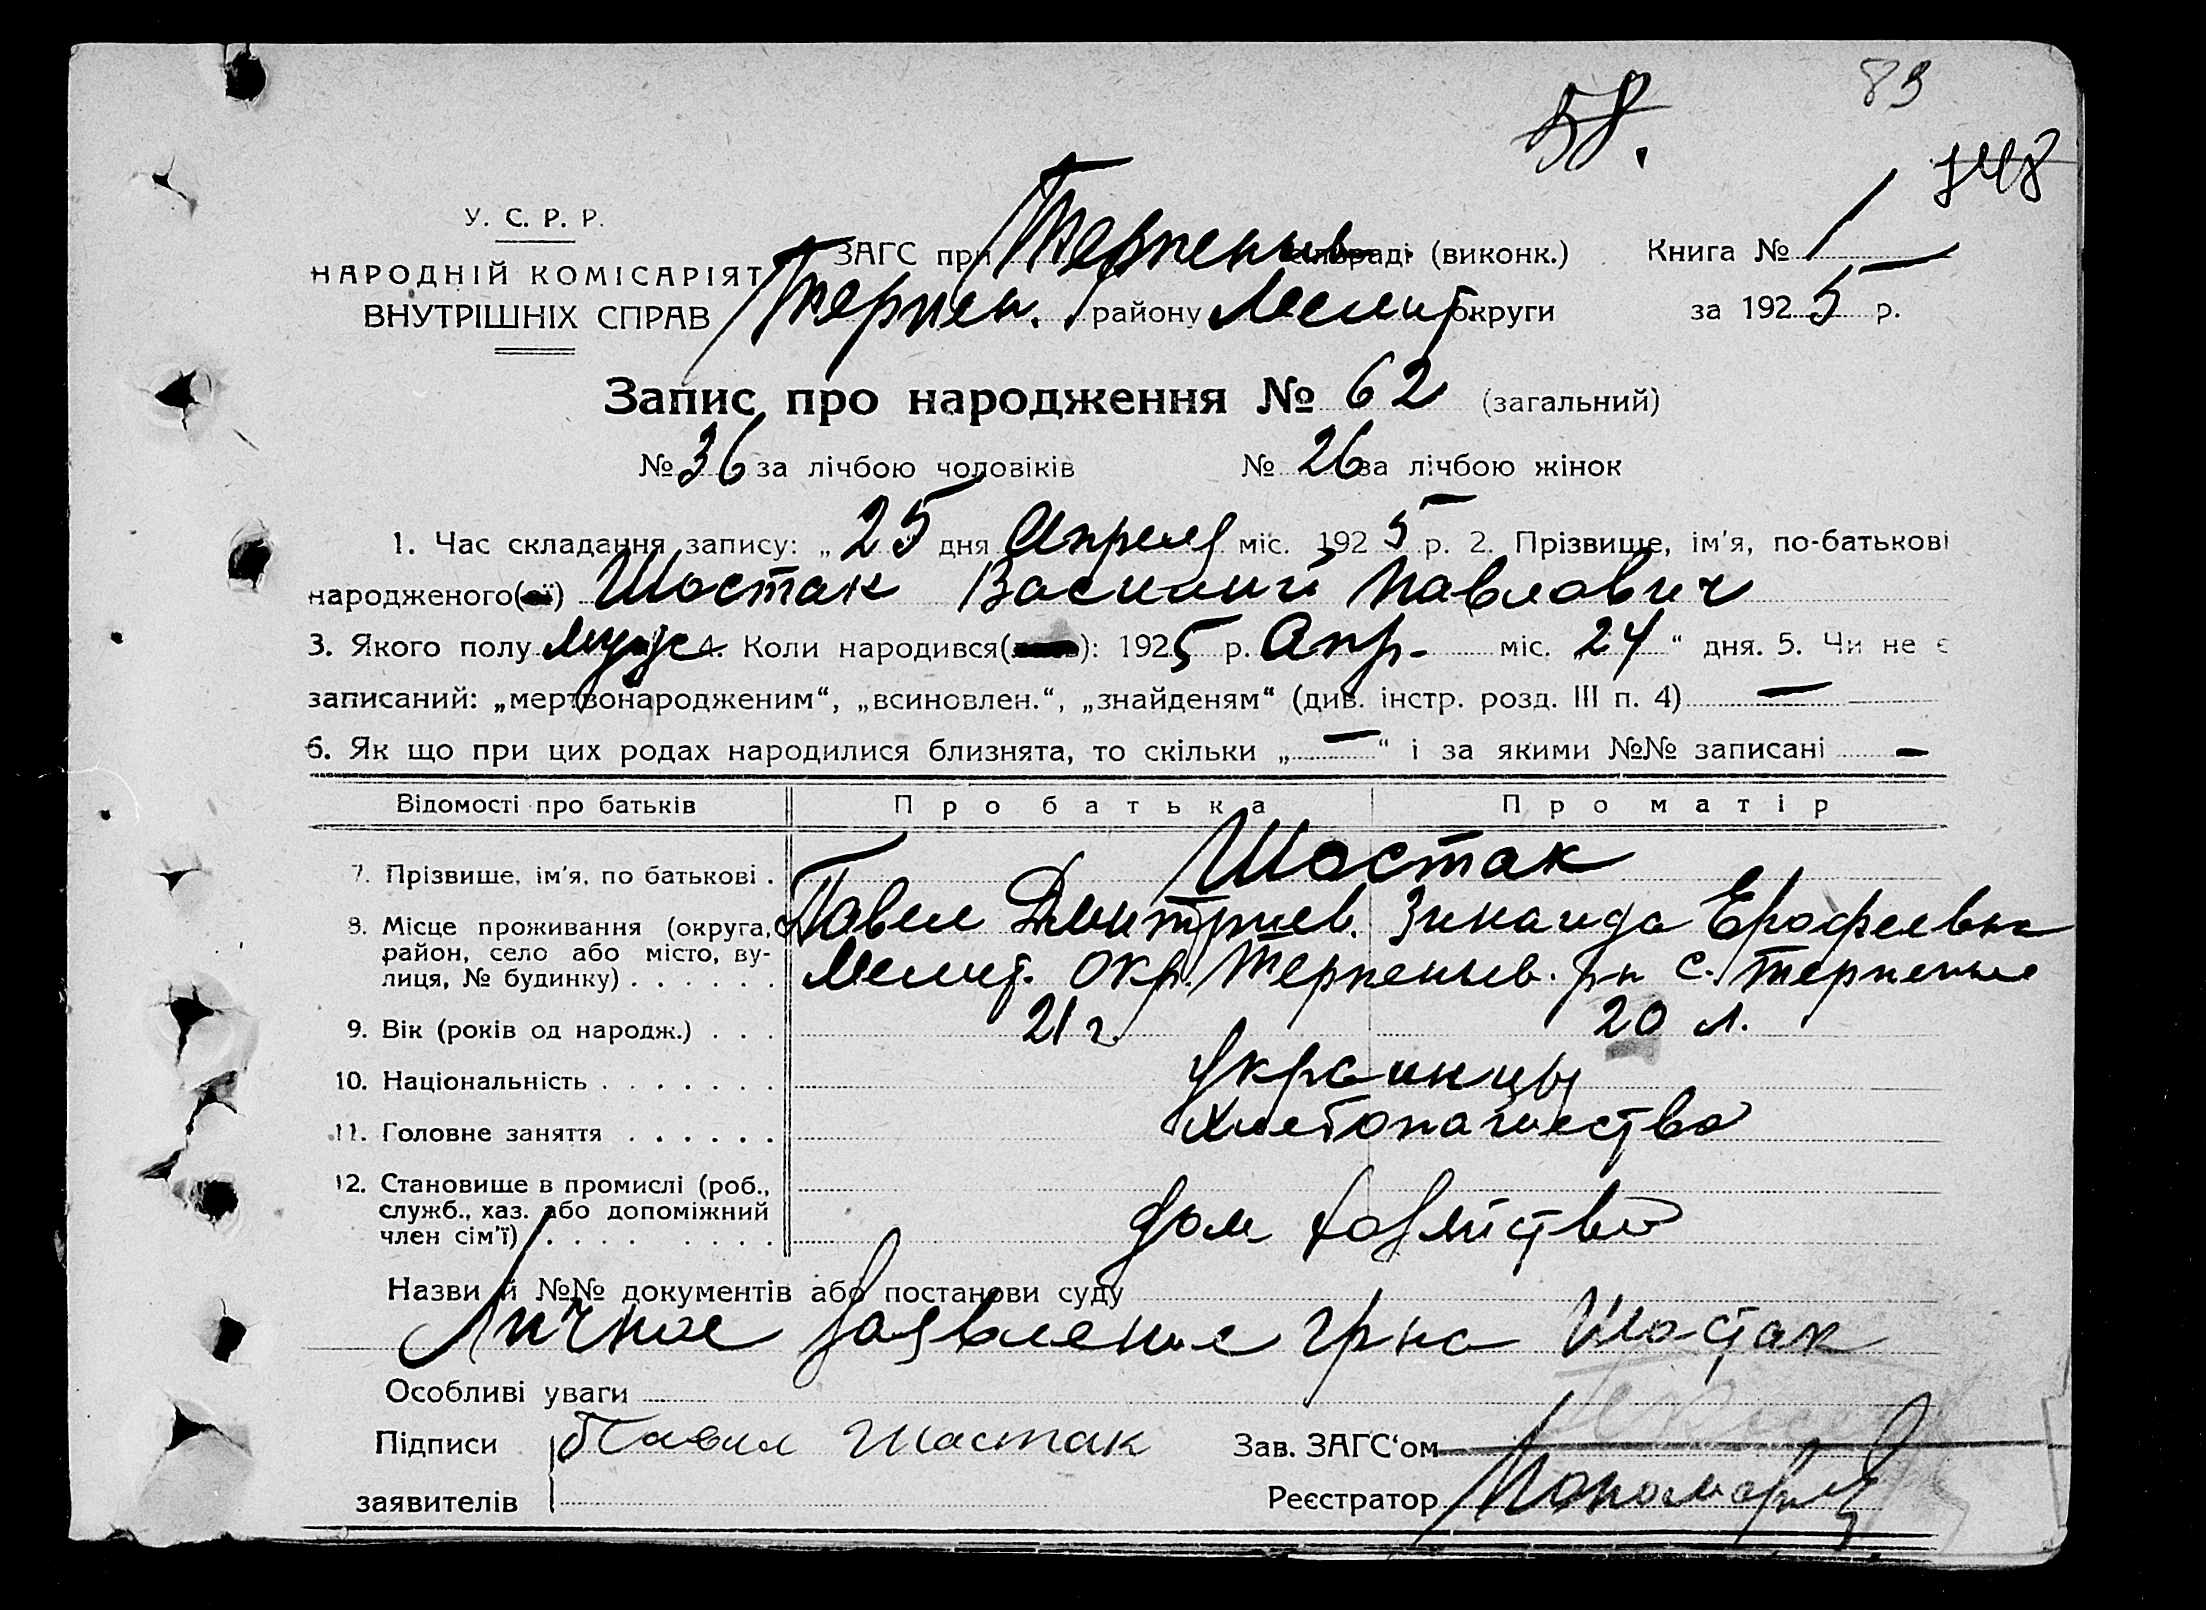 83
58.
748
У. С. Р. Р.
НАРОДНІЙ КОМІСАРІЯТ
ВНУТРІШНІХ СПРАВ
ЗАГС при Терпеньев. сільраді (виконк.) Книга № 1
Терпен. району Мелит округи за 1925 р.
Запис про народження № 62 (загальний)
№ 36 за лічбою чоловіків № 26 за лічбою жінок
1. Час складання запису: „25 дня Апреля міс. 1925 р. 2. Прізвище, ім'я, по-батькові
народженого(ої) Шостак Василий Павлович
3. Якого полу муж 4. Коли народився( ): 1925 р. Апр. міс. „24“ дня. 5. Чи не є
записаний: „мертвонародженим“, „всиновлен.“, „знайденям“ (див. інстр. розд. III п. 4) —
6. Як що при цих родах народилися близнята, то скільки „—“ і за якими №№ записані —
Відомості про батьків Про батька Про матір
7. Прізвище, ім'я, по батькові . Шостак
Павел Дмитриев. Зинаида Ерофеевна
8. Місце проживання (округа, район, село або місто, вулиця, № будинку) . . . . . . Мелит. окр. Терпеньев. р-н с. Терпенье
9. Вік (років од народж.) . . . 21 г. 20 л.
10. Національність . . . . . . . Украинцы
11. Головне заняття . . . . . . Хлебопашество
12. Становище в промислі (роб., служб., хаз. або допоміжний член сім'ї) . . . . . . . . дом хозяйство
Назви й №№ документів або постанови суду
Личное заявление гр-на Шостак
Особливі уваги
Підписи Павел Шостак Зав. ЗАГС‘ом
заявителів Реєстратор